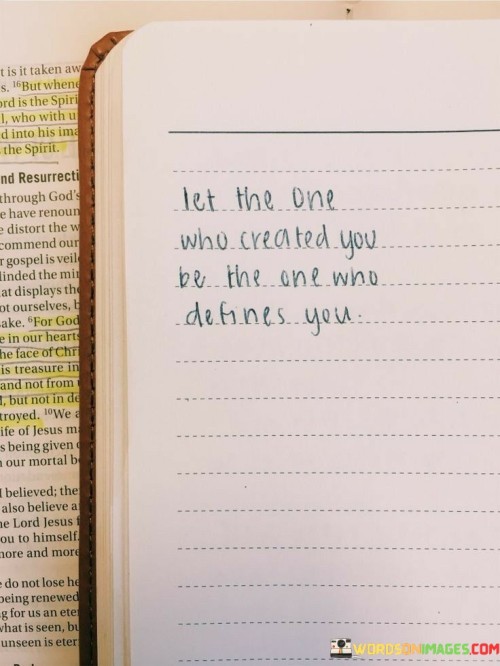 t is it taken aw
s. 16But whene
ord is the Spiri
l, who with u
d into his ima
the Spirit.
nd Resurrecti
through God's
e have renoun
e distort the w
commend our
r gospel is veile
linded the min
at displays the
ot ourselves, b
sake. 6For God
e in our hearts
he face of Chri
is treasure in
and not from u
l, but not in de
troyed. 10We a
ife of Jesus ma
s being given o
n our mortal bo
I believed; the
also believe a
he Lord Jesus f
you to himself.
more and more
e do not lose he
being renewed
ng for us an eter
what is seen, bu
unseen is etern
let the One
who created you
be the one who
defines you.
WORDSONIMAGES.COM